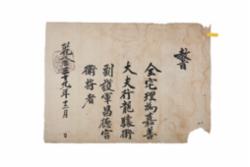 敎
金宅理爲嘉善
大夫行龍驤衛
副護軍昌德宮
衛將者
乾隆三十九年十二月 日